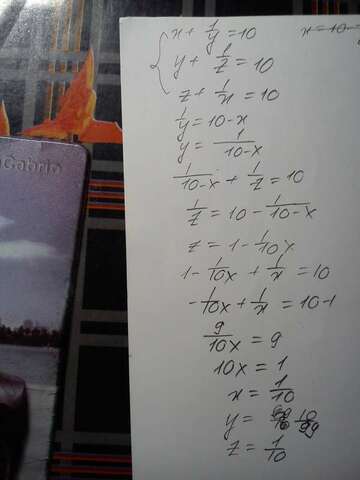 x + 1/y = 10
x = 10
y + 1/z = 10
z + 1/x = 10
1/y = 10 - x
y = 1/(10-x)
Gabrio
1/(10-x) + 1/z = 10
1/z = 10 - 1/(10-x)
z = 1 - 1/10x
1 - 1/10x + 1/x = 10
-1/10x + 1/x = 10-1
9/10x = 9
10x = 1
x = 1/10
y = 10/99
z = 1/10